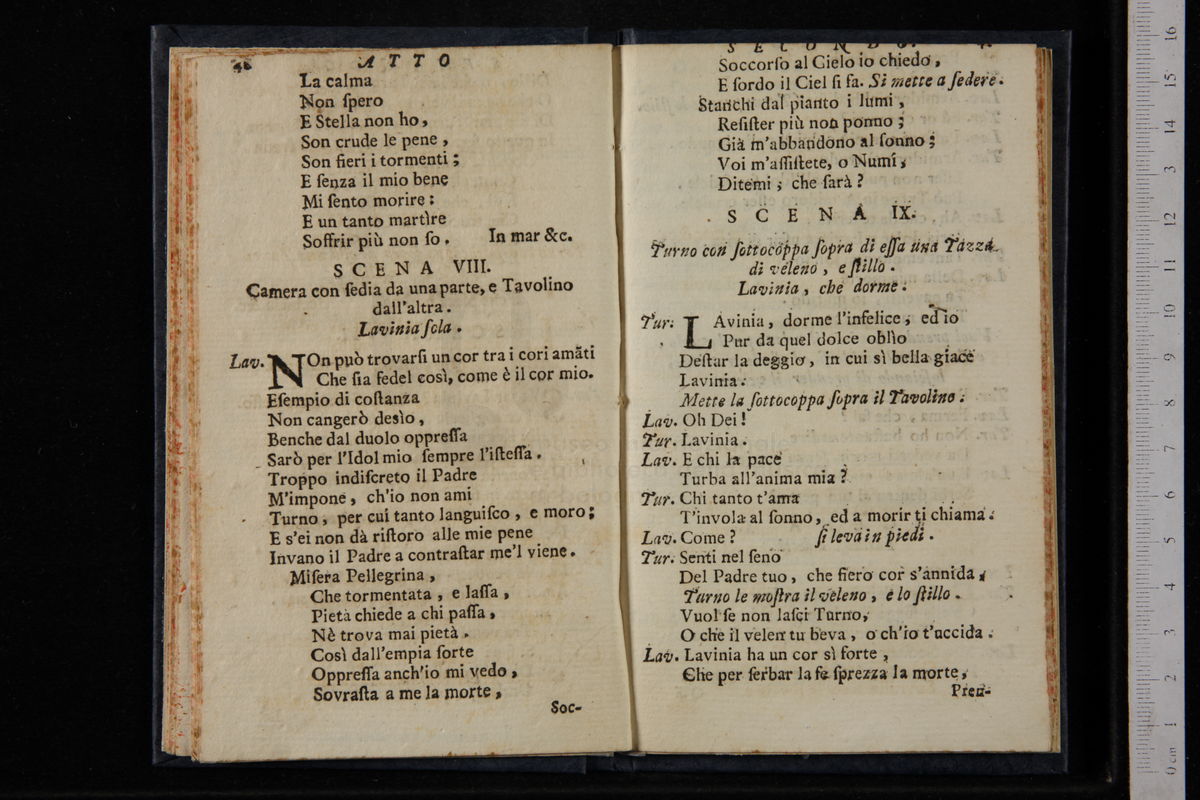 ATTO
La calma
Non ſpero
E Stella non ho,
Son crude le pene,
Son fieri i tormenti;
E ſenza il mio bene
Mi ſento morire:
E un tanto martìre
Soffrir più non ſo. In mar &c.
SCENA VIII.
Camera con ſedia da una parte, e Tavolino
dall'altra.
Lavinia ſola.
Lav. NOn può trovarſi un cor tra i cori amāti
Che ſia fedel così, come è il cor mio.
Eſempio di coſtanza
Non cangerò desìo,
Benche dal duolo oppreſſa
Sarò per l'Idol mio ſempre l'iſteſſa.
Troppo indiſcreto il Padre
M'impone, ch'io non ami
Turno, per cui tanto languiſco, e moro;
E s'ei non dà riſtoro alle mie pene
Invano il Padre a contraſtar me'l viene.
Miſera Pellegrina,
Che tormentata, e laſſa,
Pietà chiede a chi paſſa,
Nè trova mai pietà.
Così dall'empia ſorte
Oppreſſa anch'io mi vedo,
Sovraſta a me la morte,
Soc-
SECONDO.
Soccorſo al Cielo io chiedo,
E ſordo il Ciel ſi fa. Si mette a ſedere.
Stanchi dal pianto i lumi,
Reſiſter più non ponno;
Già m'abbandono al ſonno;
Voi m'aſſiſtete, o Numi,
Ditemi; che ſarà?
SCENA IX.
Turno con ſottocoppa ſopra di eſſa una Tazza
di veleno, e ſtillo.
Lavinia, che dorme.
Tur. LAvinia, dorme l'infelice, ed io
Pur da quel dolce oblìo
Deſtar la deggio, in cui sì bella giace
Lavinia.
Mette la ſottocoppa ſopra il Tavolino.
Lav. Oh Dei!
Tur. Lavinia.
Lav. E chi la pace
Turba all'anima mia?
Tur. Chi tanto t'ama
T'invola al ſonno, ed a morir ti chiama.
Lav. Come? ſi leva in piedi.
Tur. Senti nel ſeno
Del Padre tuo, che fiero cor s'annida,
Turno le moſtra il veleno, e lo ſtillo.
Vuol ſe non laſci Turno,
O che il velen tu beva, o ch'io t'uccida.
Lav. Lavinia ha un cor sì forte,
Che per ſerbar la fe ſprezza la morte,
Pren-
0 cm 1 2 3 4 5 6 7 8 9 10 11 12 13 14 15 16